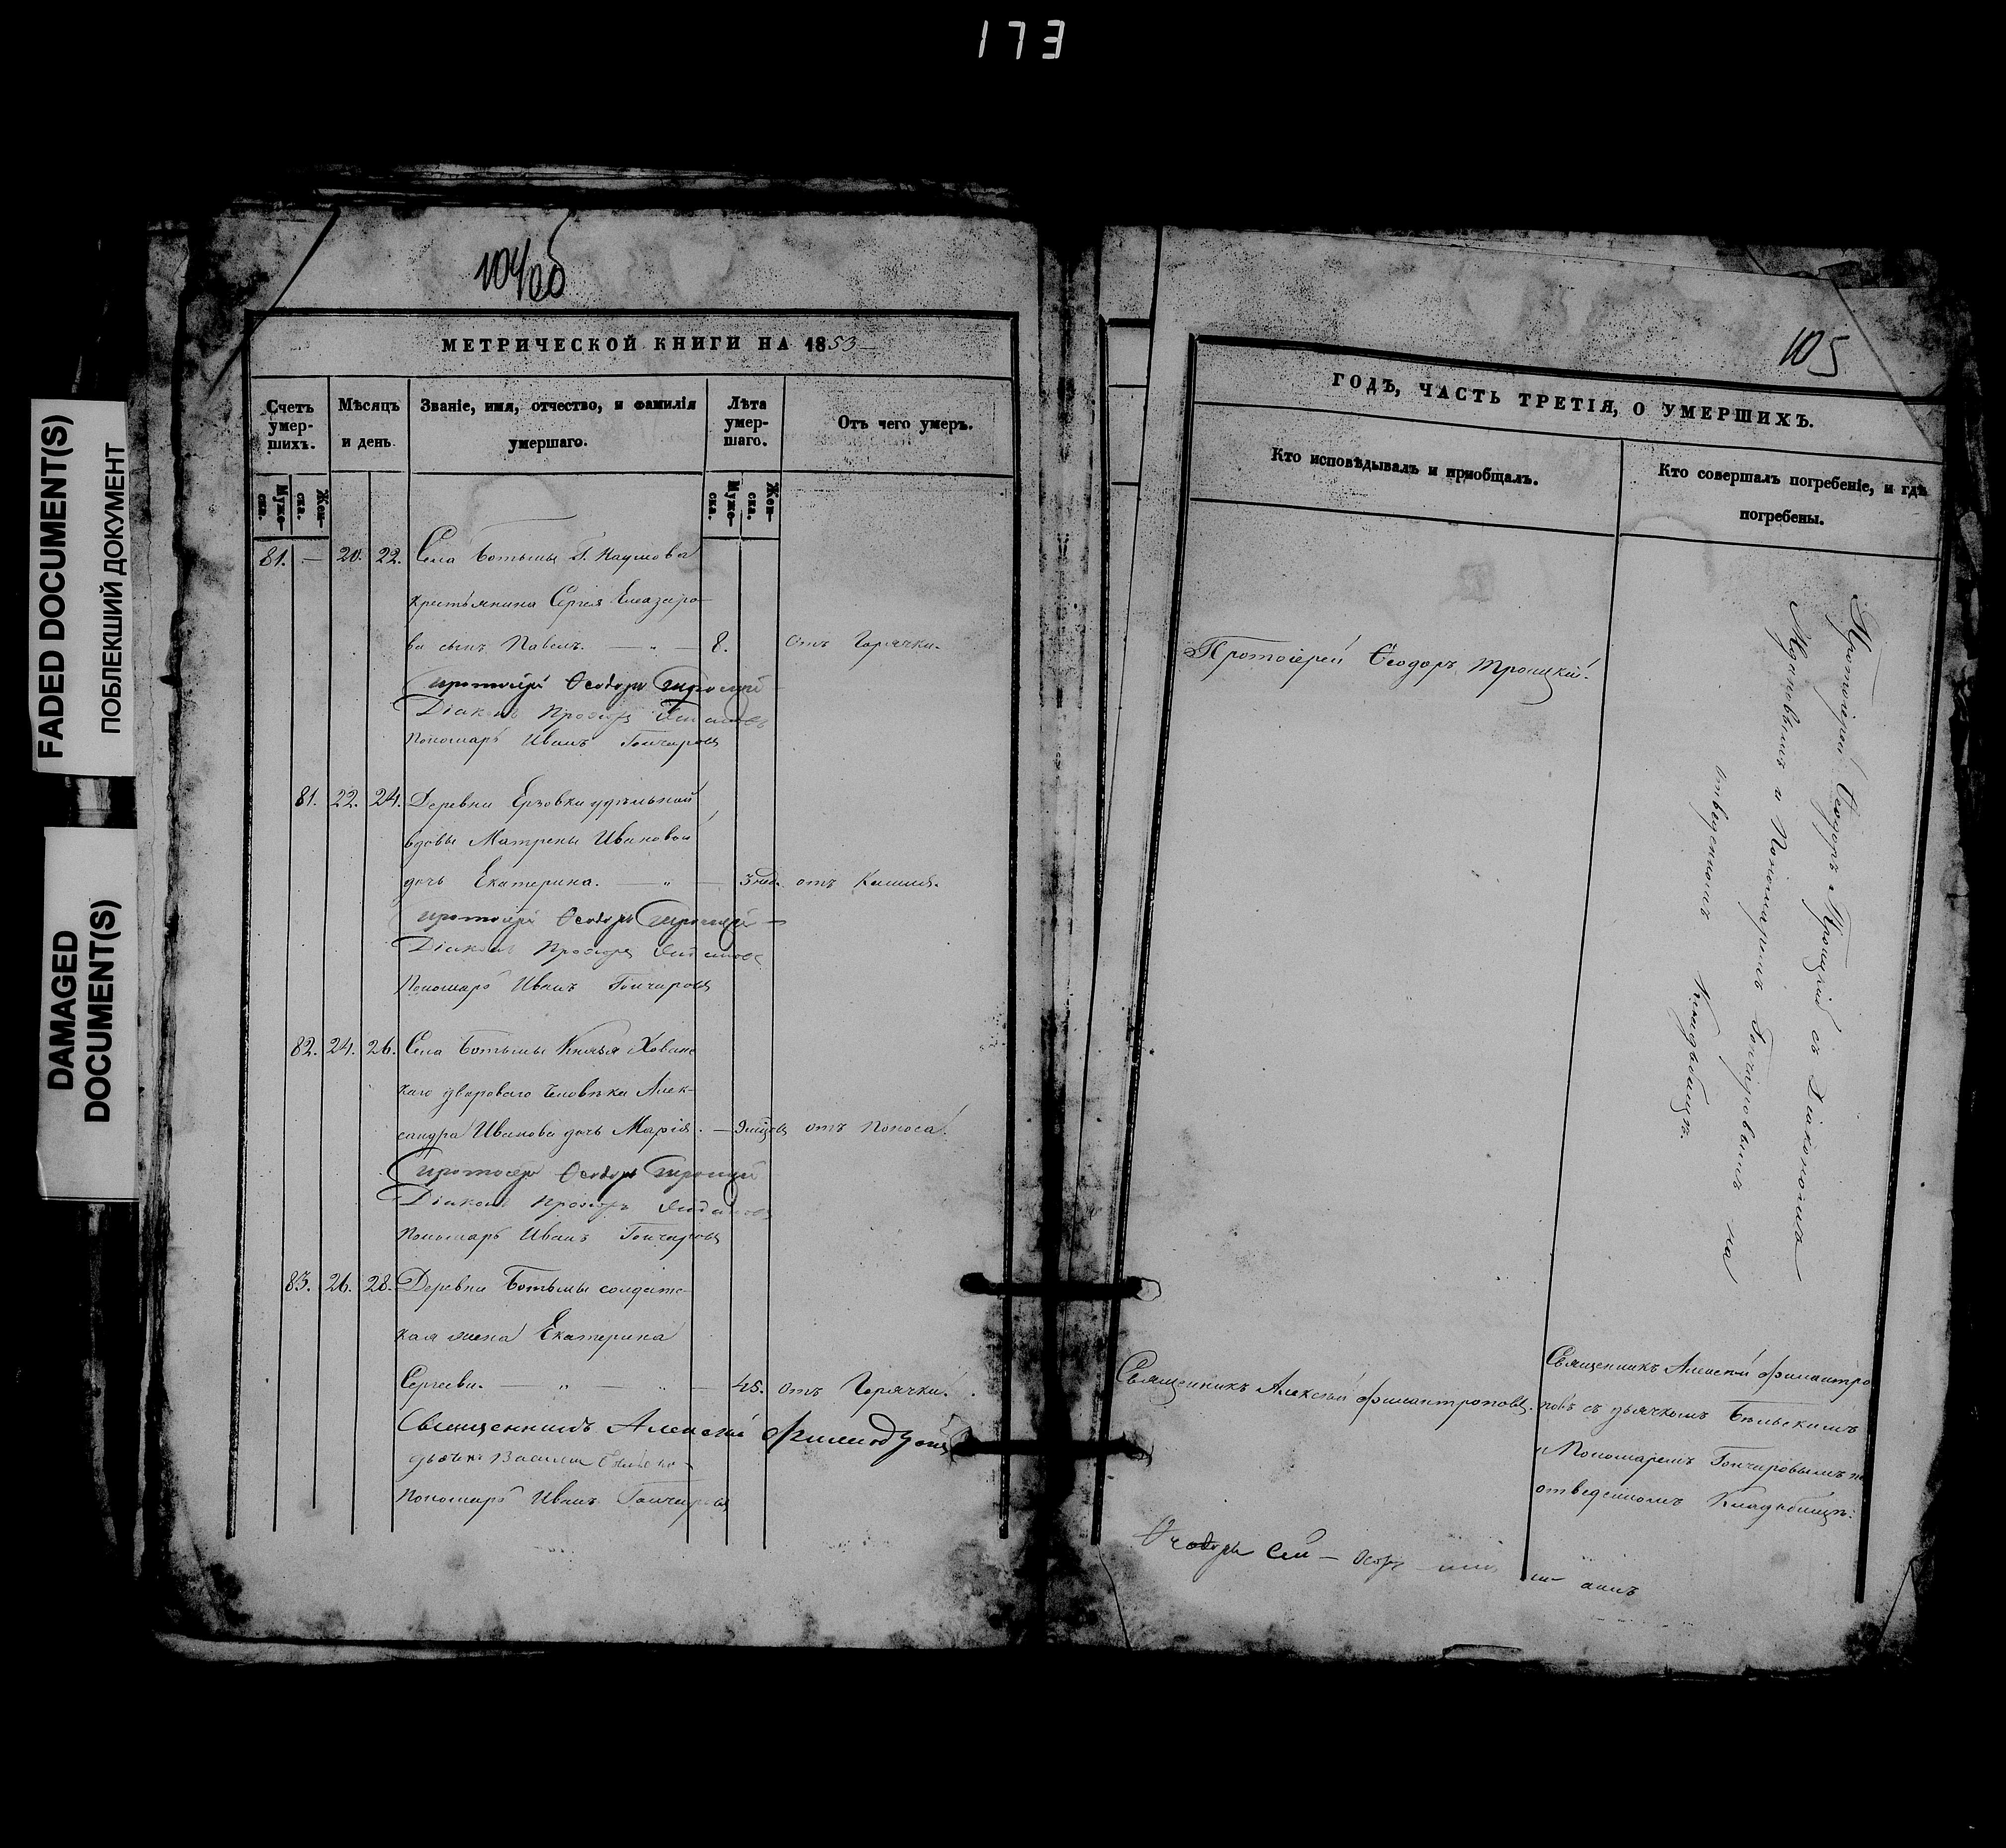 173
FADED DOCUMENT(S)
ПОБЛЕКШИЙ ДОКУМЕНТ
DAMAGED
DOCUMENT(S)
104об
МЕТРИЧЕСКОЙ КНИГИ НА 1853
Счетъ умер-шихъ.
Мѣсяцъ и день.
Званіе, имя, отчество, и фамилія умершаго.
Лѣта умер-шаго.
Отъ чего умеръ.
Муже-ска.
Жен-ска.
Муже-ска.
Жен-ска.
81. — 20. 22. Села Ботьмы Г. Наумова
крестьянина Сергея Елеазаро-
ва сынъ Павелъ. — „ — 8. отъ Горячки.
Протоіерей Ѳеодоръ Троицкій
Діаконъ
Пономарь Иванъ Гончаровъ
81. 22. 24. Деревни Ерзовки удѣльной
вдовы Матрены Ивановой
дочь Екатерина. — „ — 3 нед. отъ Кашля.
Протоіерей Ѳеодоръ Троицкій
Діаконъ
Пономарь Иванъ Гончаровъ
82. 24. 26. Села Ботьмы Князя Хованс
каго двороваго человѣка Алек-
сандра Иванова дочь Марія. — 9 мцовъ отъ Поноса.
Протоіерей Ѳеодоръ Троицкій
Діаконъ
Пономарь Иванъ Гончаровъ
83. 26. 28. Деревни Ботьмы солдатс-
кая жена Екатерина
Сергеева. „ — „ — 45. отъ Горячки.
Священникъ Алексѣй
Пономарь Иванъ Гончаровъ
105
ГОДЪ, ЧАСТЬ ТРЕТІЯ, О УМЕРШИХЪ.
Кто исповѣдывалъ и пріобщалъ.
Кто совершалъ погребеніе, и гдѣ погребены.
Протоіерей Ѳеодоръ Троицкій.
Протоіерей Ѳеодоръ Троицкій съ Діакономъ
и Пономаремъ Гончаровымъ на
отведенномъ Кладбищѣ.
Священникъ Алексѣй Филантроповъ.
Священникъ Алексѣй Филантро
повъ съ дьячкомъ Бѣльскимъ
и Пономаремъ Гончаровымъ на
отведенномъ Кладбищѣ.